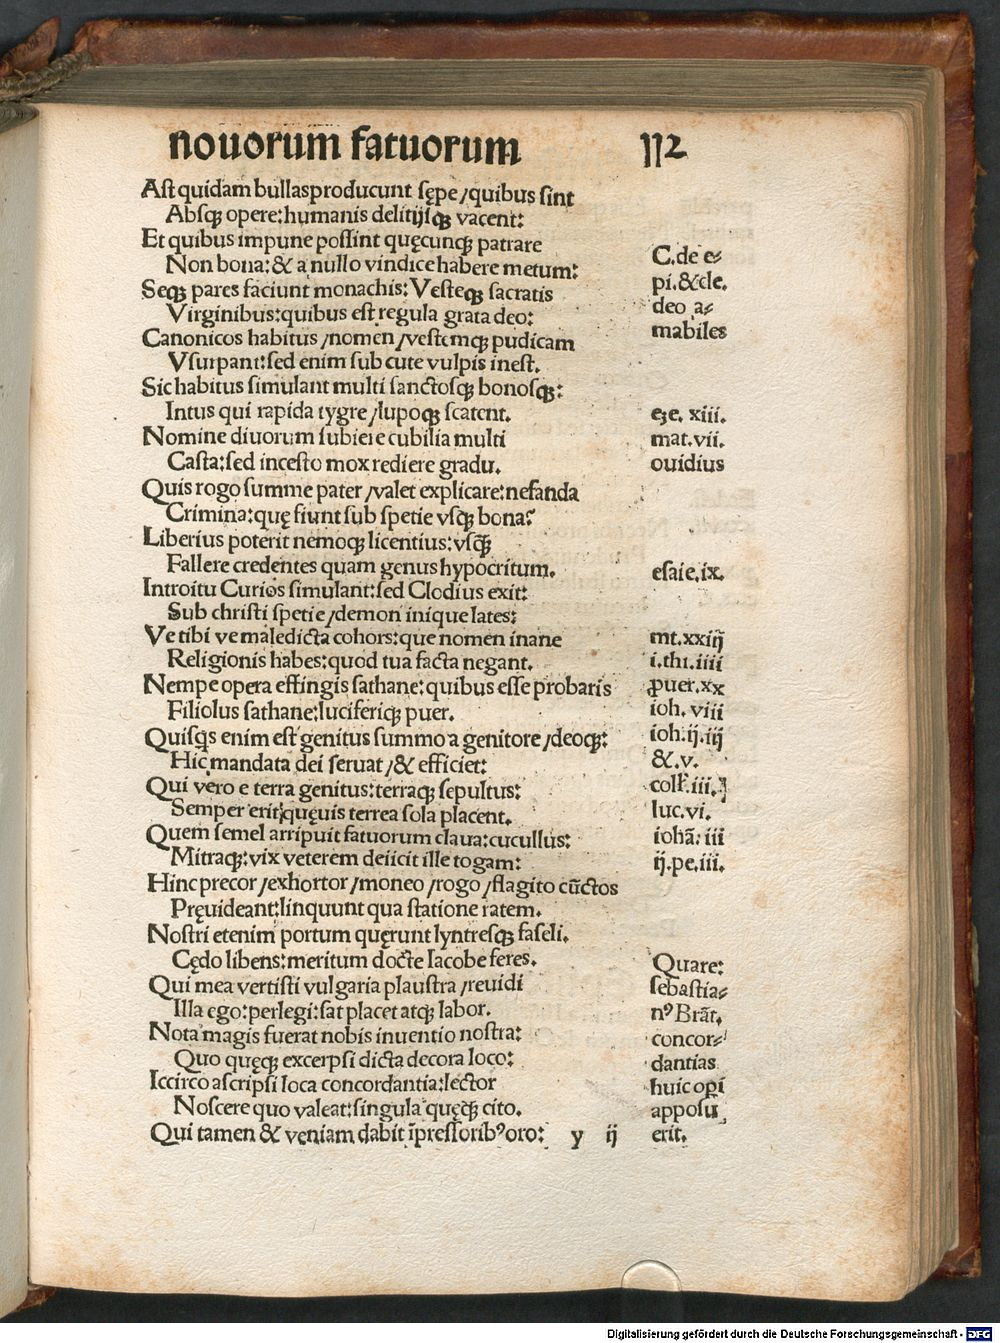 novorum fatuorum 112
Ast quidam bullas producunt sępe / quibus sint
Absq; opere: humanis delitijsq; vacent:
Et quibus impune possint quęcunq; patrare
Non bona: & a nullo vindice habere metum:
Seq; pares faciunt monachis: Vesteq; sacratis
Virginibus: quibus est regula grata deo:
Canonicos habitus / nomen / vestemq; pudicam
Vsurpant: sed enim sub cute vulpis inest.
Sic habitus simulant multi sanctosq; bonosq;:
Intus qui rapida tygre / lupoq; scatent.
Nomine diuorum subiere cubilia multi
Casta: sed incesto mox rediere gradu.
Quis rogo summe pater / valet explicare: nefanda
Crimina: quę fiunt sub spetie vsq; bona?
Liberius poterit nemoq; licentius: vsq̃;
Fallere credentes quam genus hypocritum.
Introitu Curios simulant: sed Clodius exit:
Sub christi spetie / demon inique lates:
Ve tibi ve maledicta cohors: que nomen inane
Religionis habes: quod tua facta negant.
Nempe opera effingis sathane: quibus esse probaris
Filiolus sathane: luciferiq; puer.
Quisq̃s enim est genitus summo a genitore / deoq;:
Hic mandata dei seruat / & efficiet:
Qui vero e terra genitus: terraq; sepultus:
Semper erit: quęuis terrea sola placent.
Quem semel arripuit fatuorum claua: cucullus:
Mitraq;: vix veterem deiicit ille togam:
Hinc precor / exhortor / moneo / rogo / flagito cūctos
Pręuideant: linquunt qua statione ratem.
Nostri etenim portum quęrunt lyntresq; faseli.
Cędo libens: meritum docte Iacobe feres.
Qui mea vertisti vulgaria plaustra / reuidi
Illa ego: perlegi: sat placet atq; labor.
Nota magis fuerat nobis inuentio nostra:
Quo quęq; excerpsi dicta decora loco:
Iccirco ascripsi loca concordantia: lector
Noscere quo valeat: singula quęq̃; cito.
Qui tamen & veniam dabit īpressoribꝰ oro: y ij
C. de e⸗
pi. & cle.
deo a⸗
mabiles
eze. xiii.
mat. vii.
ouidius
esaie. ix.
mt. xxiij
i. thi. iiii
ꝓuer. xx
ioh. viii
ioh. ij. iij
& v.
coll'. iii.
luc. vi.
iohā. iii
ij. pe. iii.
Quare:
sebastia⸗
nꝰ Brāt.
concor⸗
dantias
huic opi
apposu
erit.
Digitalisierung gefördert durch die Deutsche Forschungsgemeinschaft - DFG